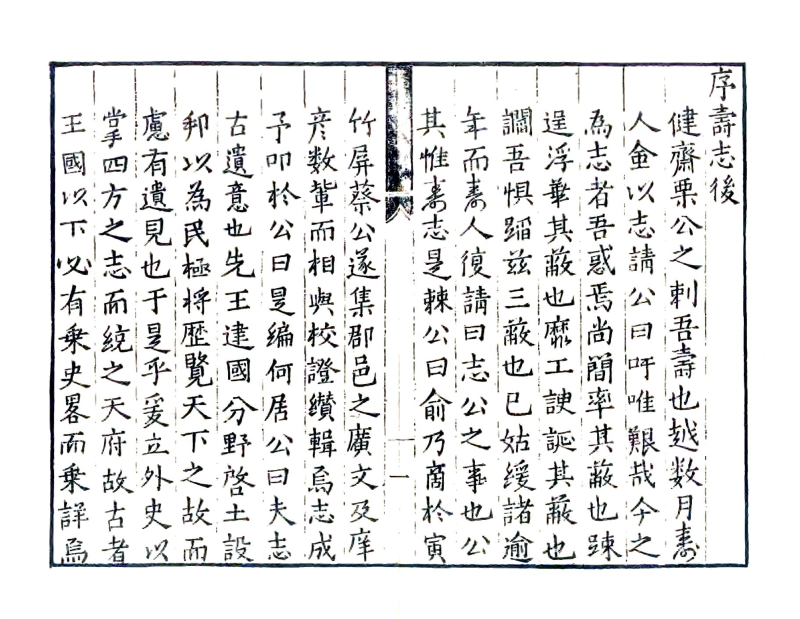 序壽志後
健齋栗公之刺吾壽也越数月壽
人僉以志請公曰吁唯艱哉今之
為志者吾惑焉尚簡率其蔽也踈
逞浮華其蔽也靡工諛誕其蔽也
讕吾惧蹈兹三蔽也已姑緩諸逾
年而壽人復請曰志公之事也公
其惟壽志是棘公曰俞乃啇於寅
一
竹屏蔡公遂集郡邑之廣文及庠
彦数輩而相與校證纉輯焉志成
予叩於公曰是編何居公曰夫志
古遺意也先王建國分野啓土設
邦以為民極將歷覽天下之故而
慮有遺見也于是乎爰立外史以
掌四方之志而統之天府故古者
王國以下必有乗史畧而乗詳焉